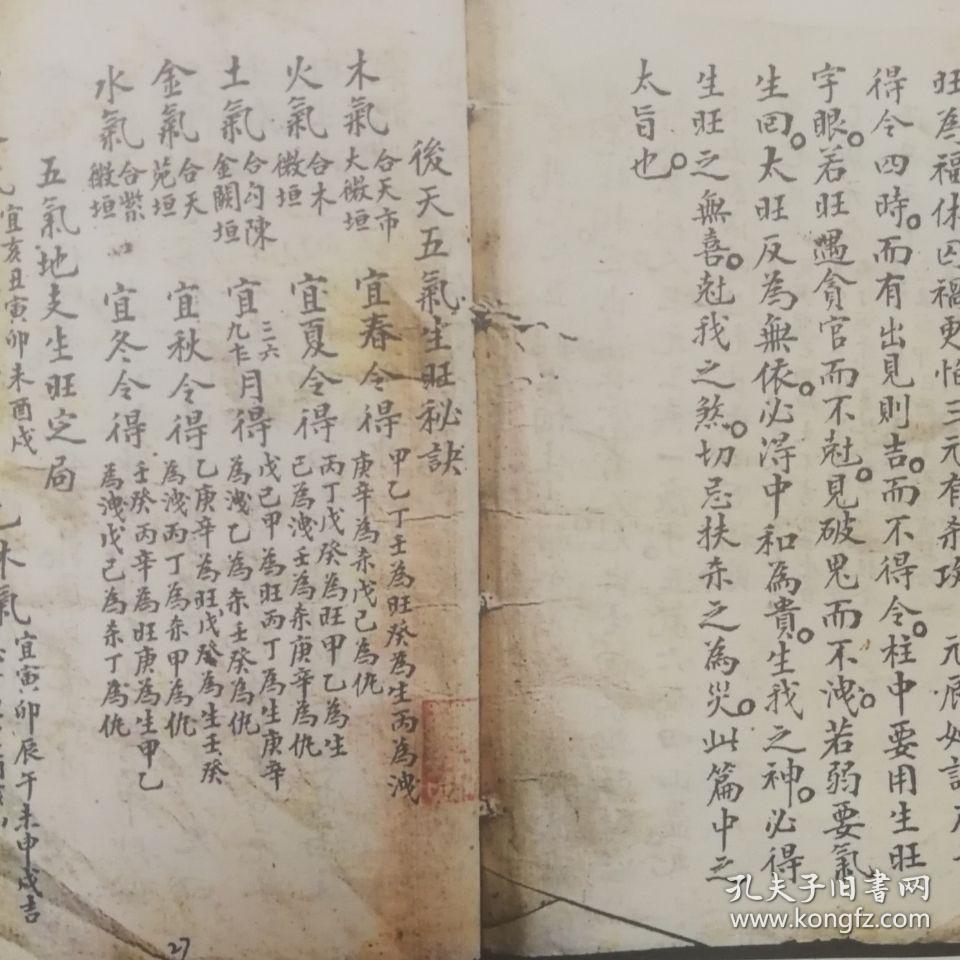 旺為福休囚禍更怕三元有
得令四時。而有出見則吉。而不得令。柱中要用生旺
字眼。若旺遇貪官而不尅。見破鬼而不洩。若弱要氣
生囘。太旺反為無依。必得中和為貴。生我之神。必得
生旺之無喜。尅我之煞。切忌扶杀之為災。此篇中之
太旨也。
後天五氣生旺秘訣
木氣 合天市太微垣 宜春令得 甲乙丁壬為旺癸為生丙為洩庚辛為杀戊己為仇
火氣 合木微垣 宜夏令得 丙丁戊癸為旺甲乙為生己為洩壬為杀庚辛為仇
土氣 合勾陳金闕垣 宜三六九十月得 戊己甲為旺丙丁為生庚辛為洩乙為杀壬癸為仇
金氣 合天苑垣 宜秋令得 乙庚辛為旺戊癸為生壬癸為洩丙丁為杀甲為仇
水氣 合紫微垣 宜冬令得 壬癸丙辛為旺庚為生甲乙為洩戊己為杀丁為仇
五氣地支生旺定局
宜亥丑寅卯未酉戌
休氣 宜寅卯辰午未申戌吉
27
孔夫子旧书网
www.kongfz.com